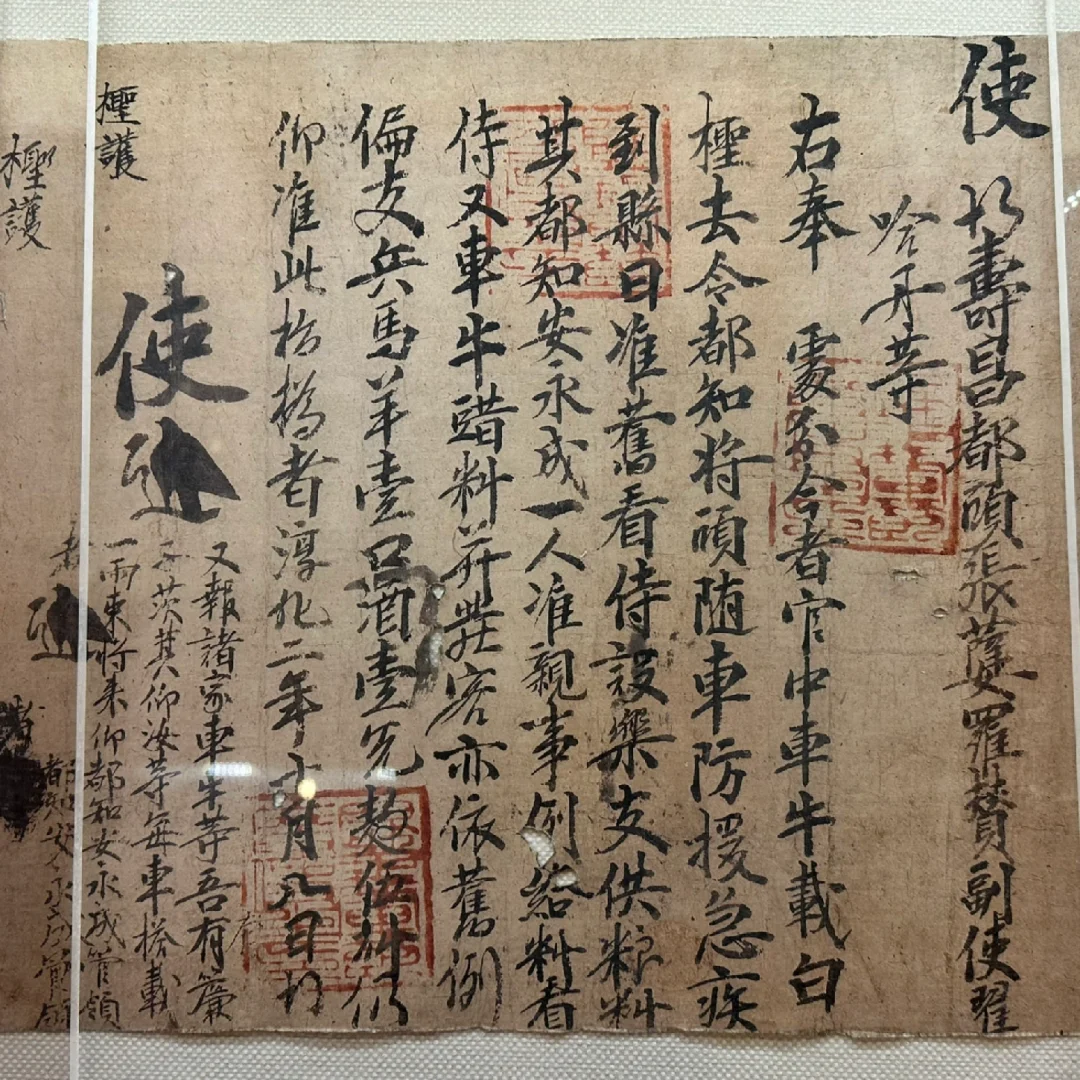 使　帖壽昌都頭張薩羅贊副使翟
哈丹等
右奉　處分今者官中車牛載白
檉去令都知將頭隨車防援急疾
到縣日准舊看侍設樂支供粮料
其都知安永成一人准親事例給料看
侍又車牛䐗料并庄客亦依舊例
偏支兵馬羊壹口酒壹瓮麪伍㪷仍
仰准此指撝者淳化二年八日
使
又報諸家車牛等吾有簾
子茨萁仰汝等每車搭載
一兩束將来仰都知安永成管領
檉護
檉護